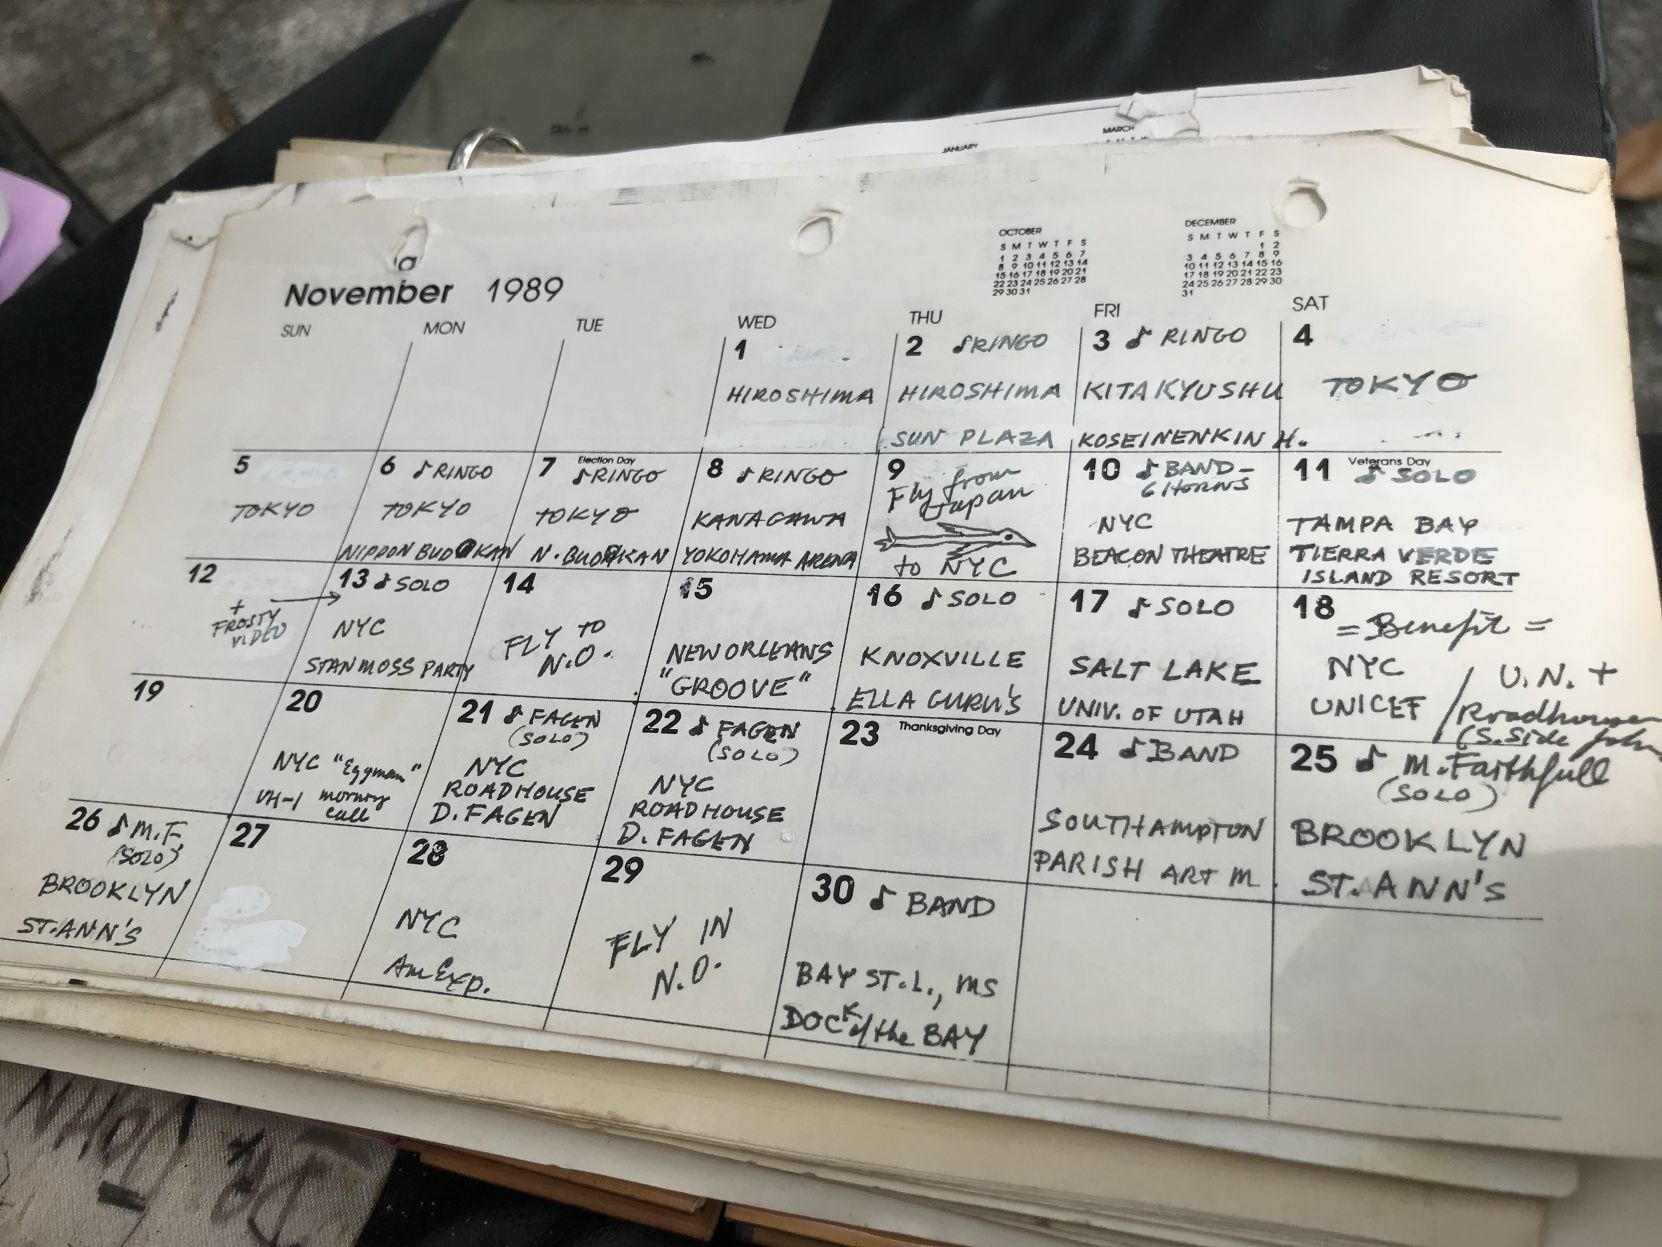 JANUARY
MARCH
November 1989
OCTOBER
S M T W T F S
1 2 3 4 5 6 7
8 9 10 11 12 13 14
15 16 17 18 19 20 21
22 23 24 25 26 27 28
29 30 31
DECEMBER
S M T W T F S
1 2
3 4 5 6 7 8 9
10 11 12 13 14 15 16
17 18 19 20 21 22 23
24 25 26 27 28 29 30
31
SUN MON TUE WED THU FRI SAT
1
HIROSHIMA
2 ♪RINGO
HIROSHIMA
SUN PLAZA
3 ♪ RINGO
KITAKYUSHU
KOSEINENKIN H.
4
TOKYO
5
TOKYO
6 ♪RINGO
TOKYO
NIPPON BUDOKAN
7 Election Day
♪RINGO
TOKYO
N. BUDOKAN
8 ♪RINGO
KANAGAWA
YOKOHAMA ARENA
9
Fly from
Japan
to NYC
10 ♪ BAND-
6 HORNS
NYC
BEACON THEATRE
11 Veterans Day
♪ SOLO
TAMPA BAY
TIERRA VERDE
ISLAND RESORT
12
+
FROSTY
VIDEO
13 ♪SOLO
NYC
STAN MOSS PARTY
14
FLY TO
N.O.
15
NEW ORLEANS
"GROOVE"
16 ♪ SOLO
KNOXVILLE
ELLA GURU'S
17 ♪ SOLO
SALT LAKE
UNIV. OF UTAH
18
= Benefit =
NYC
UNICEF
/ U.N. +
Roadhouse
(S. Side John
19
20
NYC "Eggman"
VH-1 morning
call
21 ♪ FAGEN
(SOLO)
NYC
ROADHOUSE
D. FAGEN
22 ♪ FAGEN
(SOLO)
NYC
ROADHOUSE
D. FAGEN
23 Thanksgiving Day
24 ♪BAND
SOUTHAMPTON
PARISH ART M.
25 ♪ M. Faithfull
(SOLO)
BROOKLYN
ST. ANN'S
26 ♪M.F.
(SOLO)
BROOKLYN
ST. ANN'S
27
28
NYC
Am Exp.
29
FLY IN
N.O.
30 ♪ BAND
BAY ST. L., MS
DOCK of the BAY
DR. JOHN